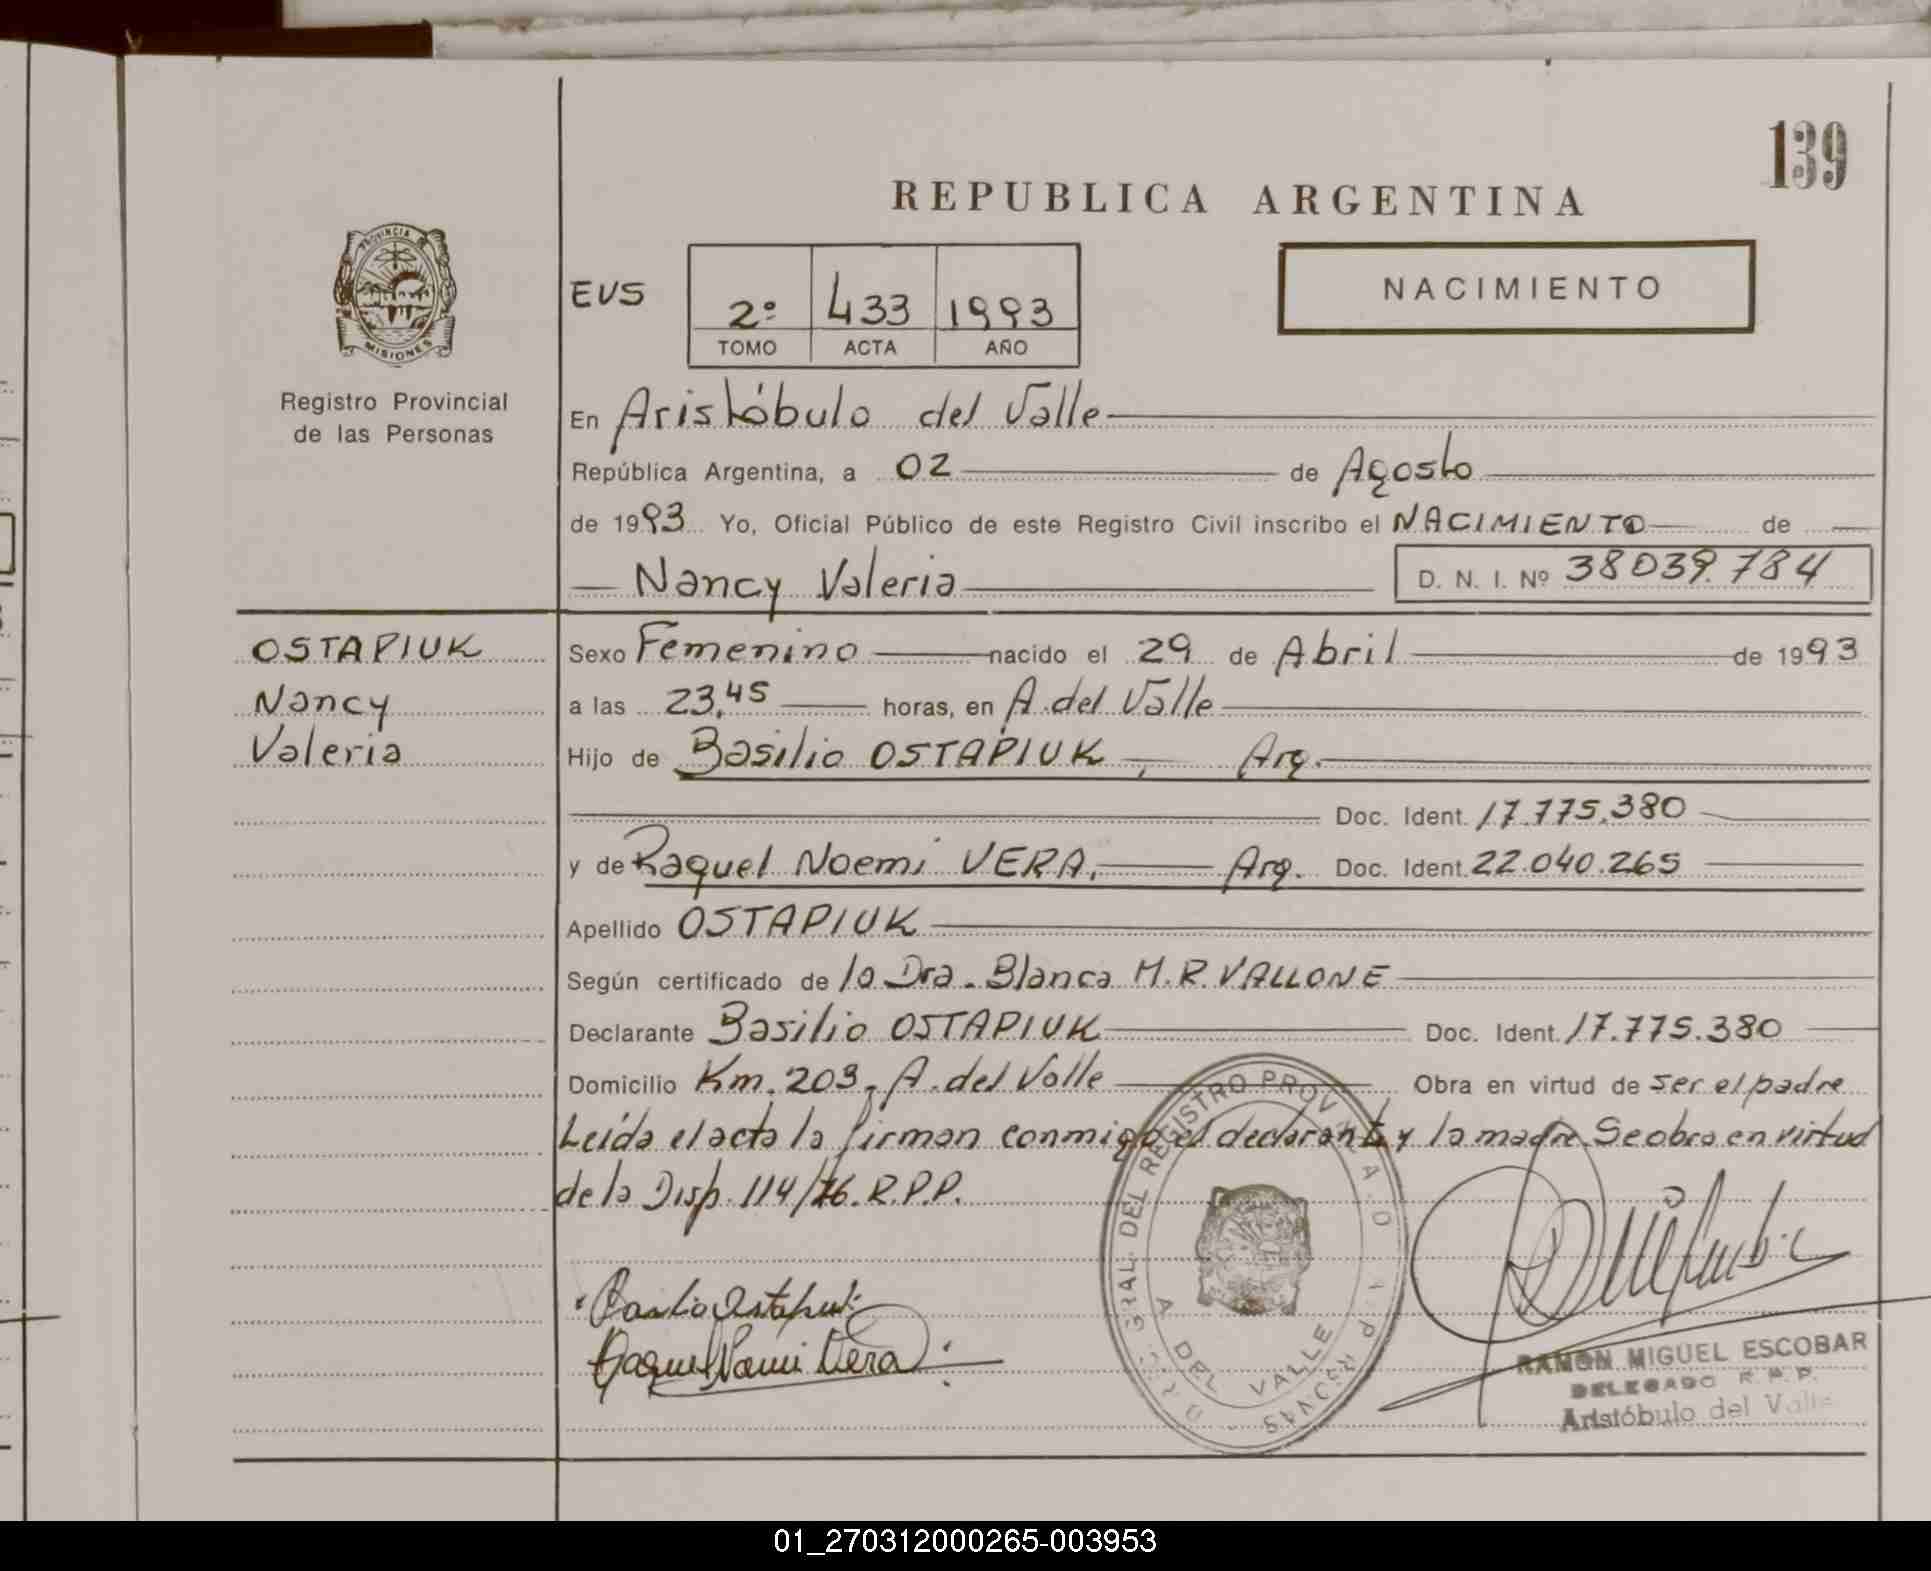 139
REPUBLICA ARGENTINA
PROVINCIA DE MISIONES
Registro Provincial
de las Personas
EVS
2º 433 1993
TOMO ACTA AÑO
NACIMIENTO
En Aristóbulo del Valle
República Argentina, a 02 de Agosto
de 1993 Yo, Oficial Público de este Registro Civil inscribo el NACIMIENTO de
Nancy Valeria D. N. I. Nº 38039.784
OSTAPIUK
Nancy
Valeria
Sexo Femenino nacido el 29 de Abril de 1993
a las 23,45 horas, en A. del Valle
Hijo de Basilio OSTAPIUK, Arg.
Doc. Ident. 17.775.380
y de Raquel Noemi VERA, Arg. Doc. Ident. 22.040.265
Apellido OSTAPIUK
Según certificado de la Dra. Blanca M.R. VALLONE
Declarante Basilio OSTAPIUK Doc. Ident. 17.775.380
Domicilio Km. 203, A. del Valle Obra en virtud de ser el padre
Leída el acta la firman conmigo el declarante y la madre. Se obra en virtud
de la Disp. 114/76. R.P.P.
Basilio Ostapiuk
Raquel Noemi Vera
GRAL. DEL REGISTRO PROVINCIAL D
A DEL VALLE
RAMON MIGUEL ESCOBAR
DELEGADO R.P.P.
Aristóbulo del Valle
01_270312000265-003953